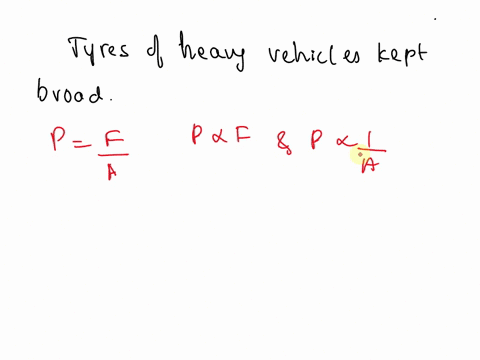 Tyres of heavy vehicles kept
broad.
P = F/A P ∝ F & P ∝ 1/A